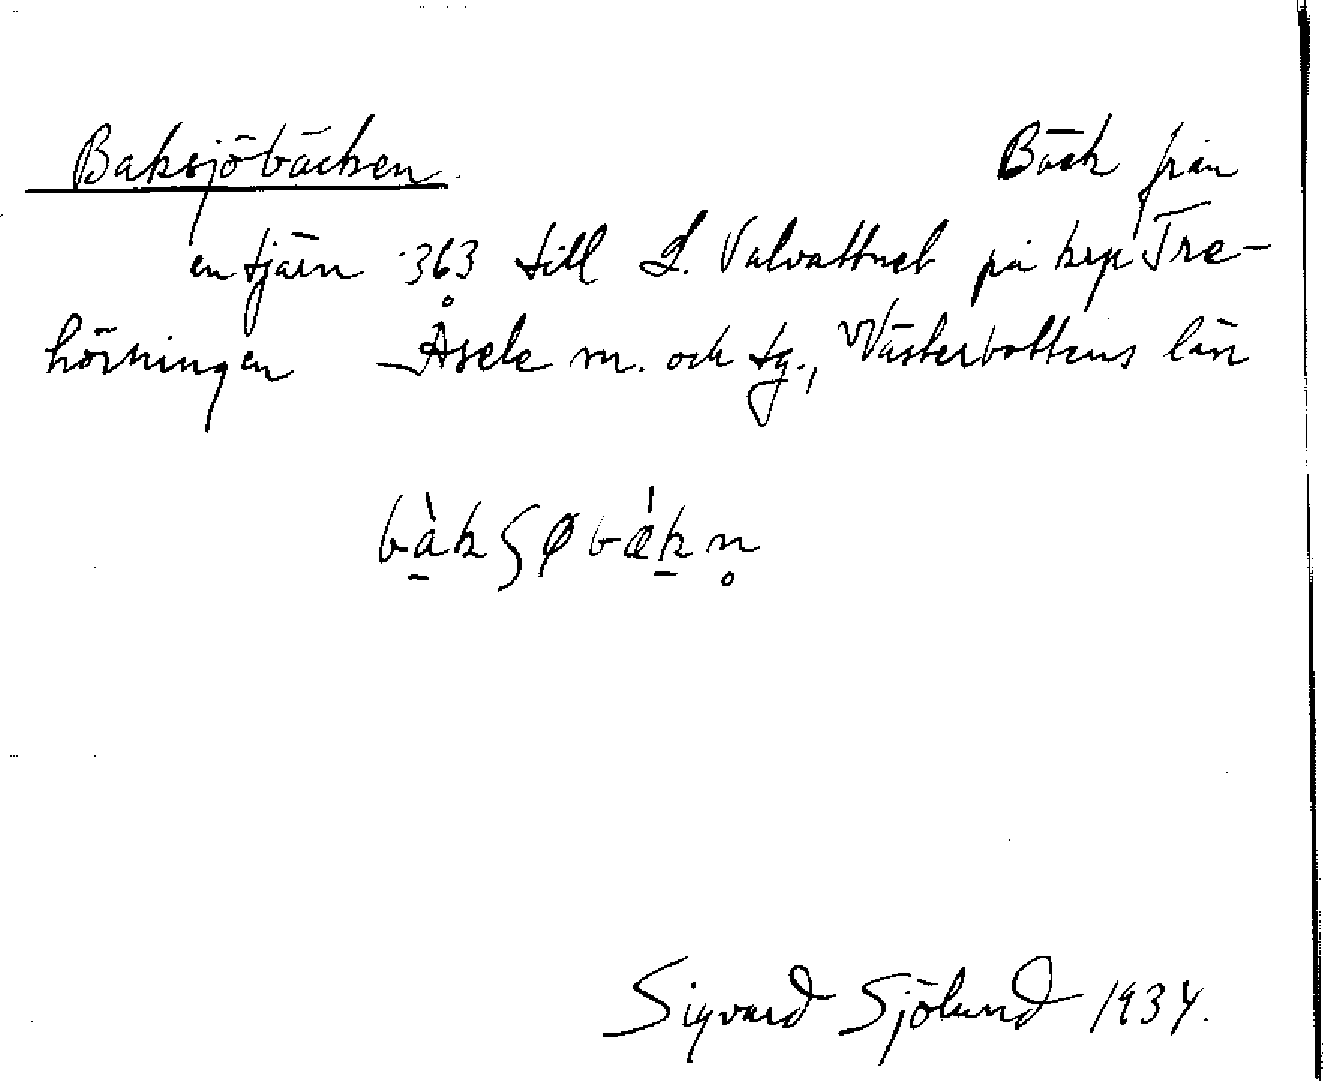 Baksjöbäcken. Bäck från
en tjärn 363 till L. Valvattnet på krp Tre-
hörningen Åsele sn. och tg., Västerbottens län
bàkʂøbǽkn̥
Sigvard Sjölund 1934.